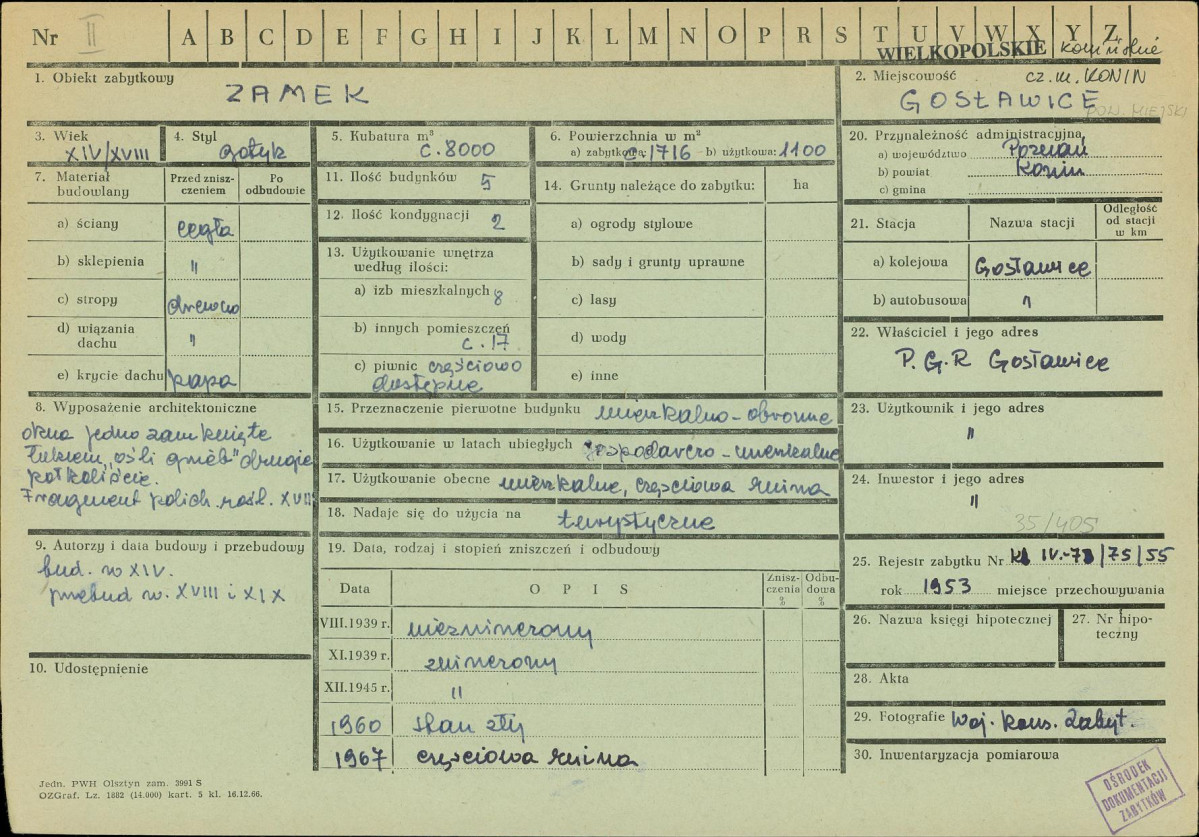 Nr II A B C D E F G H I J K L M N O P R S T U V W X Y Z
WIELKOPOLSKIE konińskie
1. Obiekt zabytkowy
ZAMEK
2. Miejscowość cz. m. KONIN
GOSŁAWICE
POW. MIEJSKI
3. Wiek
XIV/XVIII
4. Styl
gotyk
5. Kubatura m³
c. 8000
6. Powierzchnia w m²
a) zabytkowa: c. 1716 b) użytkowa: 1100
7. Materiał budowlany
Przed znisz-
czeniem
Po
odbudowie
a) ściany cegła
b) sklepienia "
c) stropy drewno
d) wiązania
dachu "
e) krycie dachu papa
8. Wyposażenie architektoniczne
okna jedno zamknięte
łukiem „ośli grzeb" drugie
półkoliście.
Fragment polich. rośl. XVIII
9. Autorzy i data budowy i przebudowy
bud. w XIV.
przebud w. XVIII i XIX
10. Udostępnienie
11. Ilość budynków 5
12. Ilość kondygnacji 2
13. Użytkowanie wnętrza
według ilości:
a) izb mieszkalnych 8
b) innych pomieszczeń
c. 17
c) piwnic częściowo
dostępne
14. Grunty należące do zabytku: ha
a) ogrody stylowe
b) sady i grunty uprawne
c) lasy
d) wody
e) inne
15. Przeznaczenie pierwotne budynku mieszkalno-obronne
16. Użytkowanie w latach ubiegłych gospodarczo-mieszkalne
17. Użytkowanie obecne mieszkalne, częściowa ruina
18. Nadaje się do użycia na turystyczne
19. Data, rodzaj i stopień zniszczeń i odbudowy
Data O P I S Znisz-
czenia
% Odbu-
dowa
%
VIII.1939 r. niezniszczony
XI.1939 r. zniszczony
XII.1945 r. "
1960 stan zły
1967 częściowa ruina
20. Przynależność administracyjna
a) województwo Poznań
b) powiat Konin
c) gmina
21. Stacja Nazwa stacji Odległość
od stacji
w km
a) kolejowa Gosławice
b) autobusowa "
22. Właściciel i jego adres
P. G. R Gosławice
23. Użytkownik i jego adres
"
24. Inwestor i jego adres
"
35/405
25. Rejestr zabytku Nr kl IV.-73/75/55
rok 1953 miejsce przechowywania
26. Nazwa księgi hipotecznej
27. Nr hipo-
teczny
28. Akta
29. Fotografie Woj. kons. Zabyt.
30. Inwentaryzacja pomiarowa
OŚRODEK
DOKUMENTACJI
ZABYTKÓW
Jedn. PWH Olsztyn zam. 3991 S
OZGraf. Lz. 1882 (14.000) kart. 5 kl. 16.12.66.